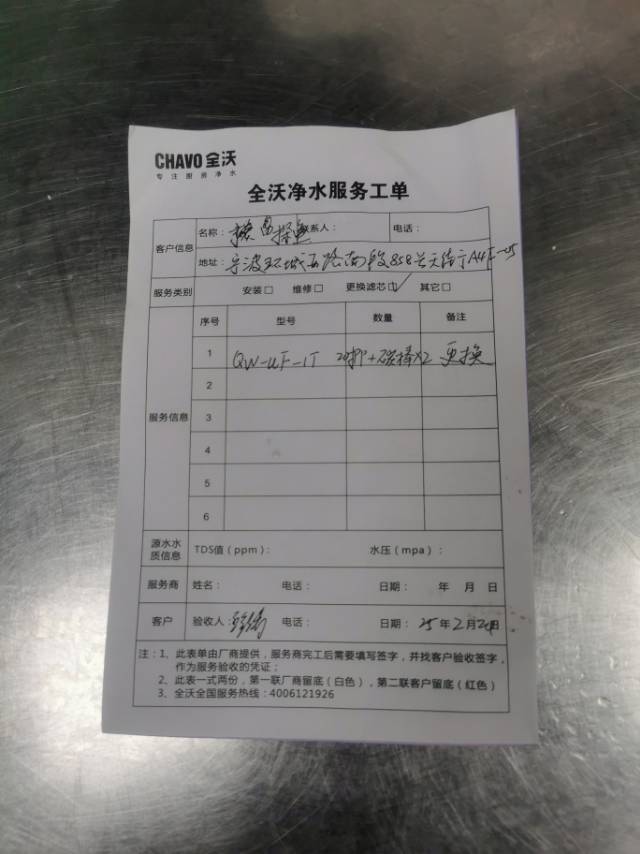 CHAVO 全沃
专注厨房净水
全沃净水服务工单
客户信息 名称： 联系人： 电话：
地址：宁波环城西路南段858号 4F-25
服务类别 安装□ 维修□ 更换滤芯□✓ 其它□
服务信息 序号 型号 数量 备注
1 QW-UF-1T 20寸PP+碳棒X2 更换
2
3
4
5
6
源水水质信息 TDS值（ppm）： 水压（mpa）：
服务商 姓名： 电话： 日期： 年 月 日
客户 验收人： 电话： 日期：25年2月24日
注：1、此表单由厂商提供，服务商完工后需要填写签字，并找客户验收签字，
作为服务验收的凭证；
2、此表一式两份，第一联厂商留底（白色），第二联客户留底（红色）
3、全沃全国服务热线：4006121926